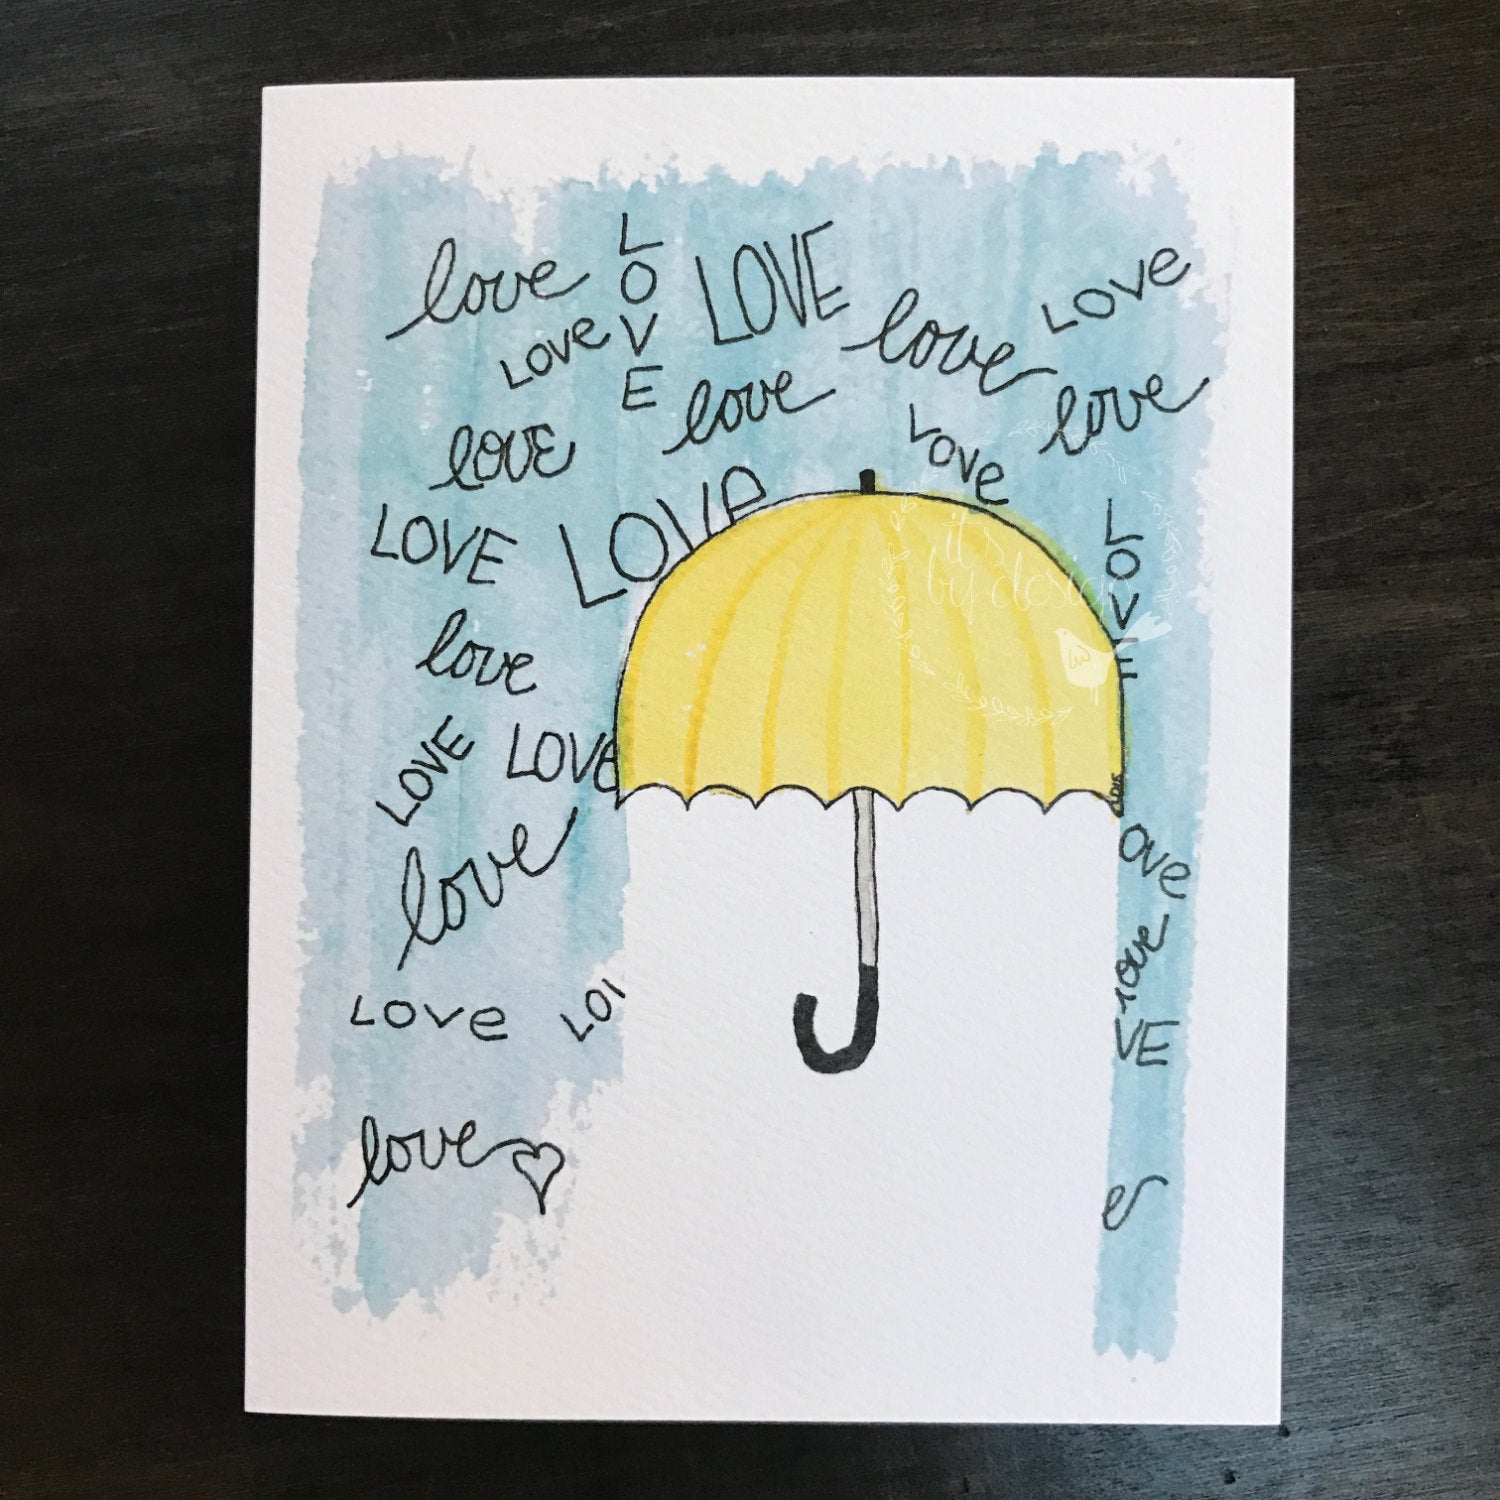 love
L
O
V
E
LOVE
love
LOVE
LOVE
love
love
love
LOVE
LOVE
LOVE
L
O
V
E
it's
by design
love
LOVE
LOVE
love
love
OVE
love
VE
LOVE
LO
love
e